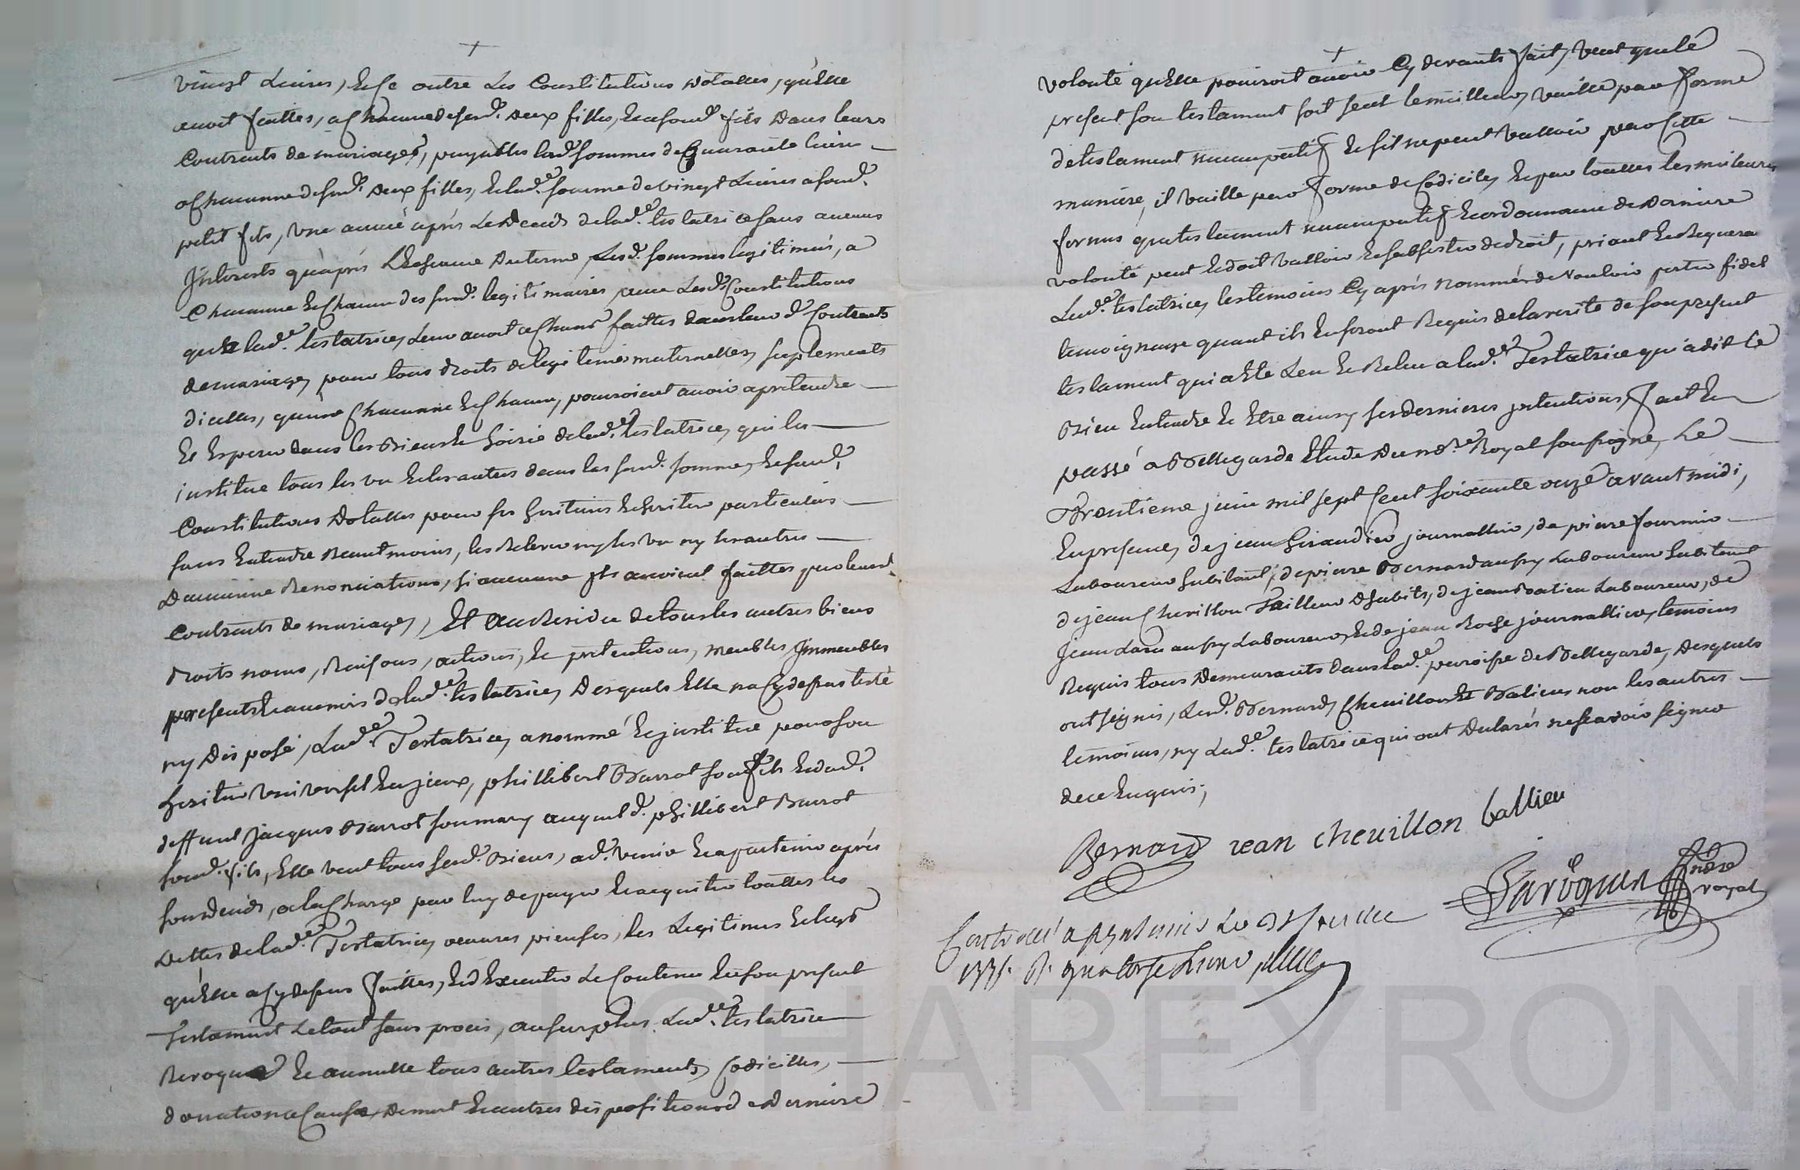 vingt Livres, Et Ce outre Les Constitutions Dotalles, qu'Elle
avoit faittes, a Chacune de ses d. deux filles, Et a son d. fils Dans leurs
Contracts de mariages, payables les d. sommes de Quarante livres
a Chacunne de ses d. deux filles, Et la d.e somme de vingt Livres a son d.
petit fils, une année après Le Décès de la d.e testatrice sans aucuns
Jnterests qu'après L'Echeance du terme, Les d. sommes legitimés, a
Chacunne Et Chacun des sus d. legitimaires, avec Les d. Constitutions
que la d.e testatrice, Leur avoit a Chacun faittes dans leur d. Contracts
de mariages, pour tous droits de legitimes maternelles, suplements
d'icelles, que une Chacunne Et Chacun, pourroient avoir a pretendre
Et Esperer dans les Biens Et hoirie de la d.e testatrice, qui les
institue tous les uns Et les autres dans les sus d. sommes, Et sus d.
Constitutions Dotalles pour ses heritieres Et heritier particuliers
sans Entendre Neantmoins, les Relever ny les uns ny les autres
D'aucunne Renonciations, si aucunne ils avoient faittes par leurs d.
Contracts de mariages, Et Au Residu de tous les autres biens
droits noms, Raisons, actions, Et pretentions, meubles Jmmeubles
presents Et avenirs de la d.e testatrice, Desquels Elle n'a Cy dessus testé
ny Disposé, La d.e Testatrice, a nommé Et institue pour son
heritier universel Phillibert Barrot son fils Et du d.
deffunt Jacques Barrot son mary auquel d. phillibert Barrot
son d. fils, Elle veut tous ses d. Biens, advenir Et apartenir après
son decès, a la Charge par luy de payer Et acquitter touttes les
Dettes de la d.e Testatrice, oeuvres pieuses, les Legitimes Et legs
qu'Elle a Cy dessus faittes, Et d'Executer Le Contenu En son present
Testament Le tout sans procès, au surplus La d.e testatrice
Revoque Et annulle tous autres testaments, Codicilles,
donation a Cause de mort Et autres dispositions de Derniere
volonté qu'Elle pouroit avoir Cy devant fait, veut que le
present son testament soit seul le meilleur, vaille par forme
de testament nuncupatif Et s'il ne peut valloir par Cette
maniere, il vaille par forme de Codicile, Et par touttes les meileures
formes que testament nuncupatif Et ordonnance de Derniere
volonté peut Et doit valloir Et subsister de droit, priant Et Requerant
La d.e testatrice, les temoins Cy après nommés de Vouloir porter fidel
temoignage quant ils En seront Requis de la verité de son present
testament qui a Eté Leu Et Releu a la d.e Testatrice qui a dit Le
Bien Entendre Et Etre ainsy ses dernieres jntentions, fait Et
passé a Bellegarde Etude du no.re Royal soussigné, Le
Trentieme juin mil sept Cent soixante onze avant midi,
En presence, de jean Giraudier journallier, de pierre fournier
Laboureur habitant, de pierre Bernard aussy Laboureur habitant
de jean Chevillon Tailleur d'habits, de jean Batieu Laboureur, de
Jean aussy Laboureur, Et de jean Roche journallier, temoins
Requis tous Demeurants dans la d.e paroisse de Bellegarde, Desquels
ont signés, Les d. Bernard, Chevillon Et Batieu non les autres
temoins, ny La d.e testatrice qui ont Declarés ne sçavoir signer
de ce Enquis,
Bernard jean chevillon battieu
Ferroguen no.re royal
Controllé a Le
1771 R. quatorze livres
CHAREYRON